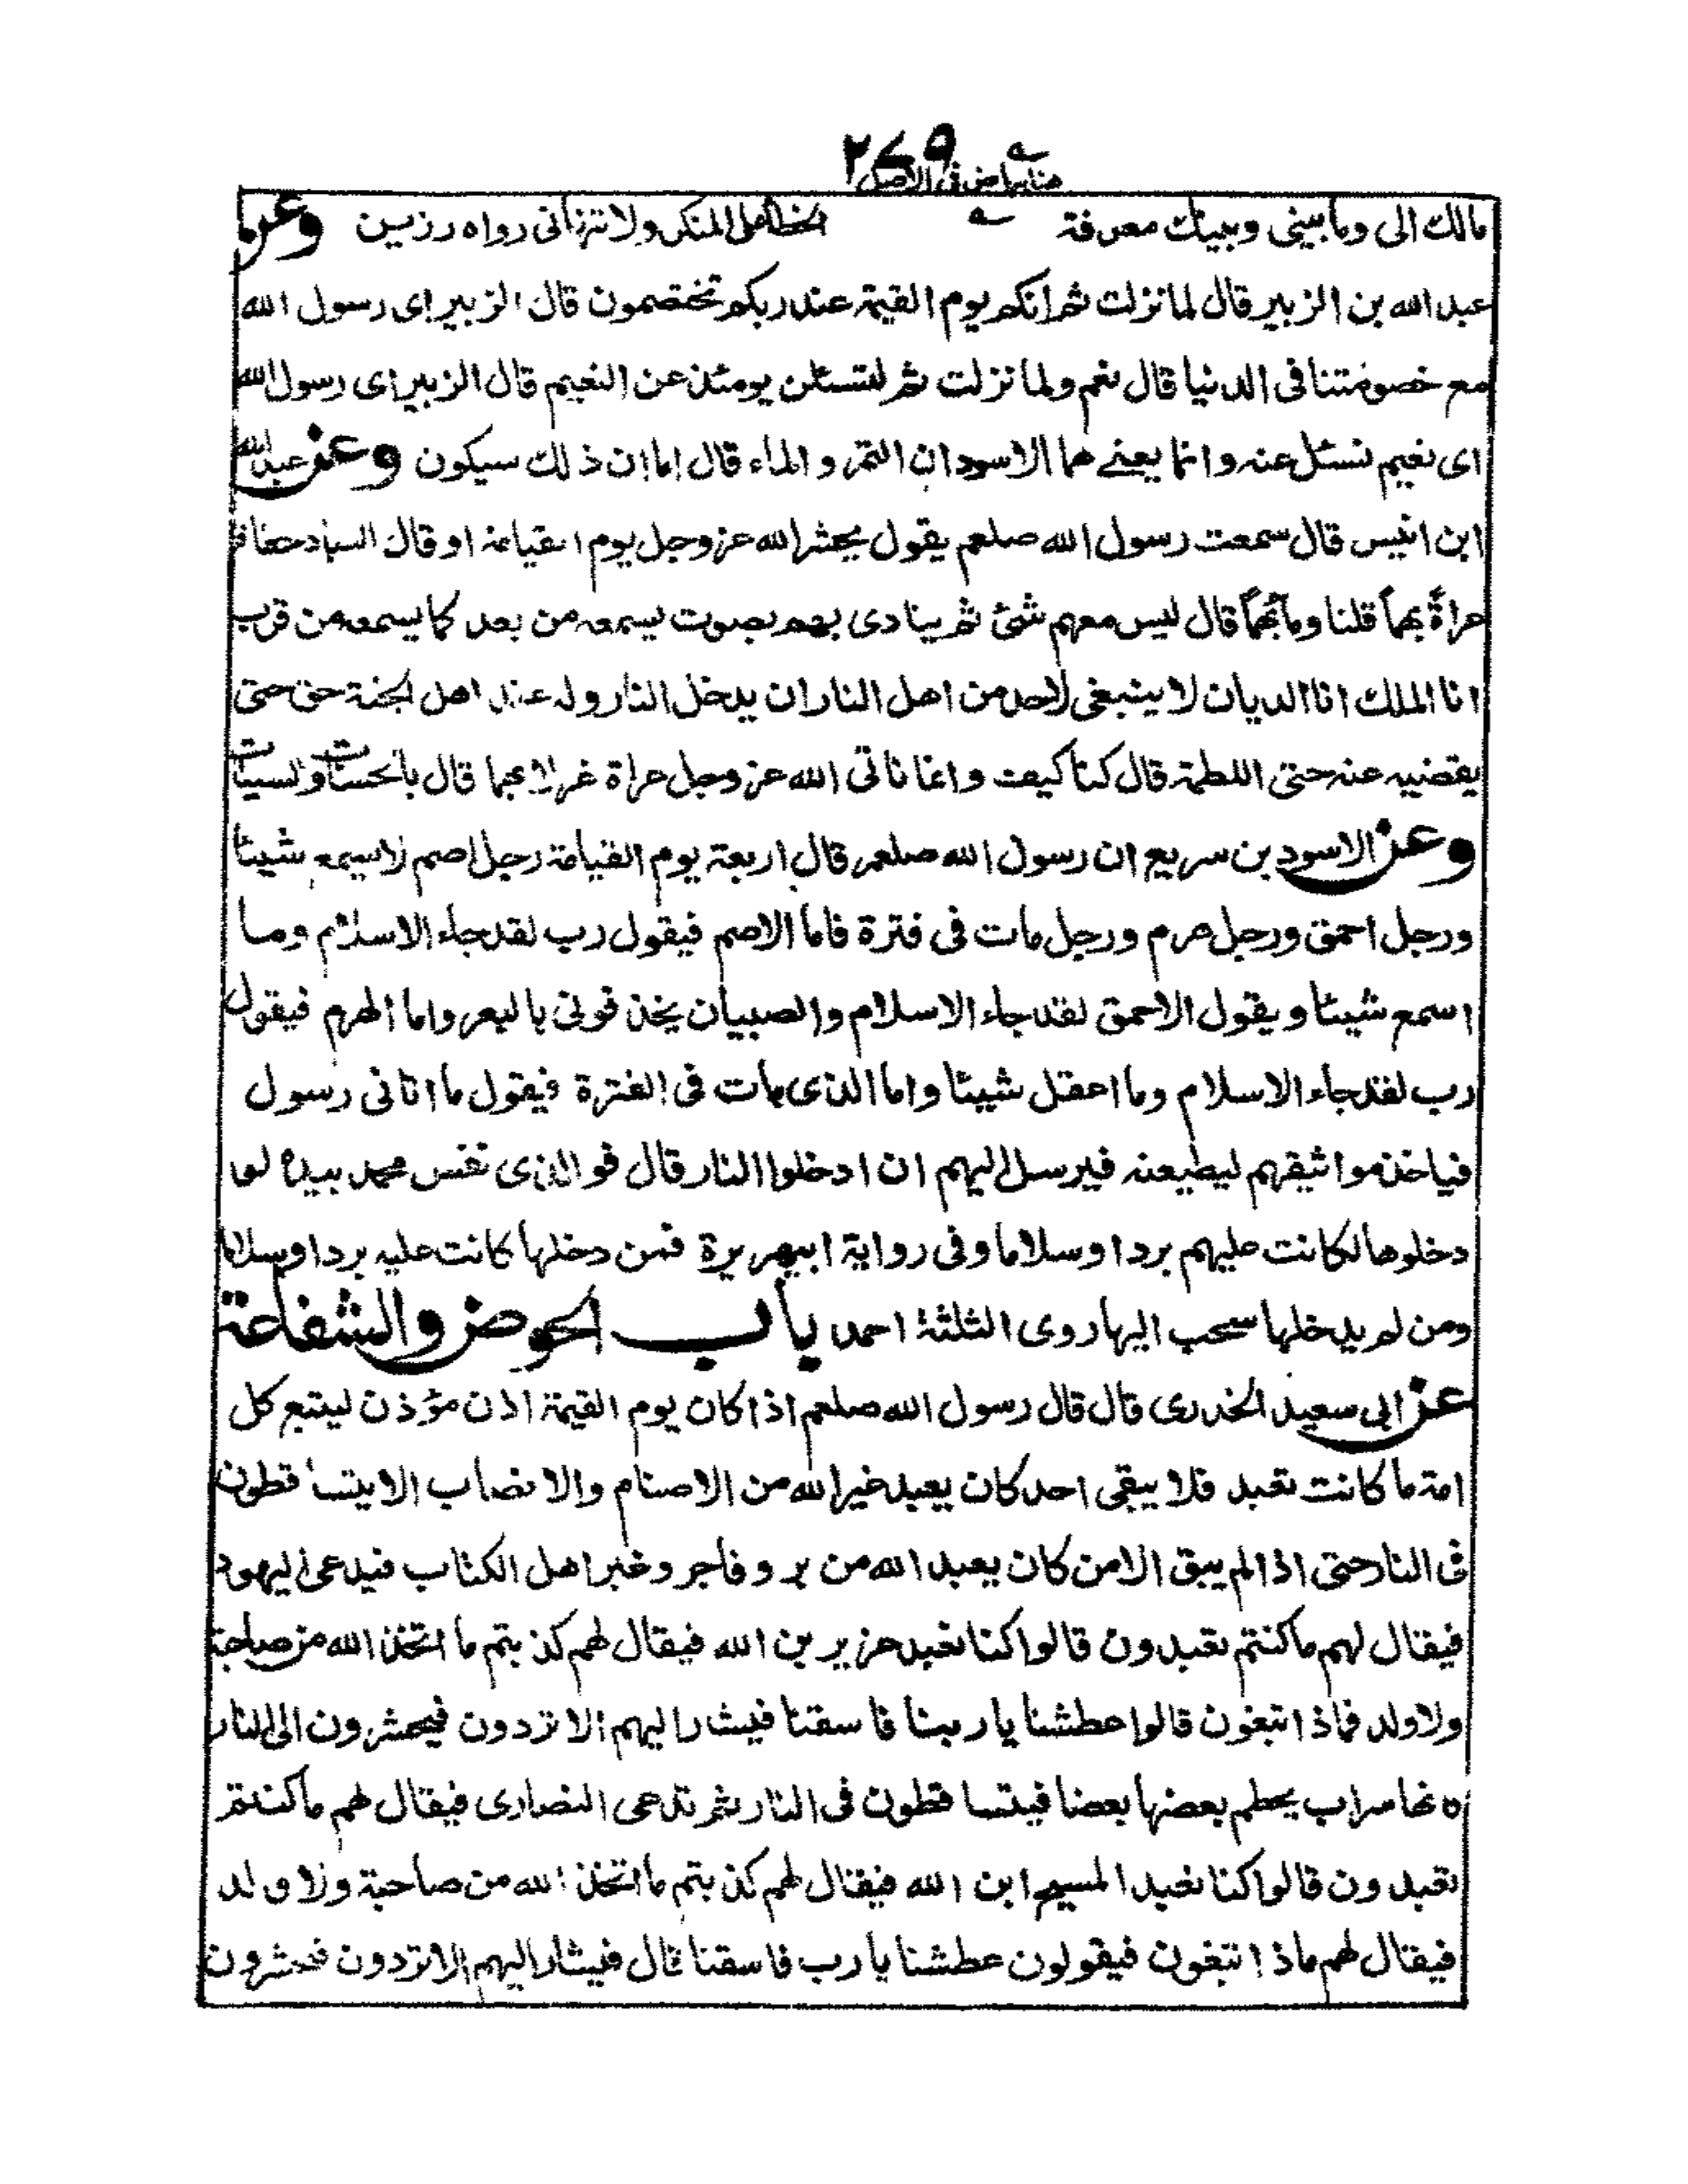 ٢٧٩
هنا بياض فى الاصل
مالك الى وما بينى وبينك معرفة الخطا على المنكر ولا تنهانى رواه رزين وعن
عبد الله بن الزبير قال لما نزلت ثم انكم يوم القيمة عند ربكم تختصمون قال الزبير اى رسول الله
مع خصومتنا فى الدنيا قال نعم ولما نزلت ثم لتسئلن يومئذ عن النعيم قال الزبير اى رسول الله
اى نعيم نسئل عنه وانما يعنے هما الاسودان التمر والماء قال اما ان ذلك سيكون وعن عبد الله
ابن انيس قال سمعت رسول الله صلعم يقول يحشر الله عز وجل يوم القيامة او قال العباد حفاة
عراةً بهماً قلنا وما بُهماً قال ليس معهم شئ ثم ينادى بهم بصوت يسمعه من بعد كما يسمعه من قرب
انا الملك انا الديان لا ينبغى لاحد من اهل النار ان يدخل النار وله عند اهل الجنة حق حتى
يقضيه عنه حتى اللطمة قال كنا كيف وانما ناتى الله عز وجل عراة غرلا بهما قال بالحسنات والسيات
وعن الاسود بن سريع ان رسول الله صلعم قال اربعة يوم القيامة رجل اصم لا يسمع شيئا
ورجل احمق ورجل هرم ورجل مات فى فترة فاما الاصم فيقول رب لقد جاء الاسلام وما
اسمع شيئا ويقول الاحمق لقد جاء الاسلام والصبيان يخذفونى بالبعر واما الهرم فيقول
رب لقد جاء الاسلام وما اعقل شيئا واما الذى مات فى الفترة فيقول ما اتانى رسول
فياخذ مواثيقهم ليطيعنه فيرسل اليهم ان ادخلوا النار قال فوالذى نفس محمد بيده لو
دخلوها لكانت عليهم بردا وسلاما وفى رواية ابيهريرة فمن دخلها كانت عليه بردا وسلاما
ومن لم يدخلها سحب اليها روى الثلثة احمد باب الحوض والشفاعة
عن ابى سعيد الخدرى قال قال رسول الله صلعم اذا كان يوم القيمة اذن مؤذن ليتبع كل
امة ما كانت تعبد فلا يبقى احد كان يعبد غير الله من الاصنام والانصاب الا يتساقطون
فى النار حتى اذا لم يبق الا من كان يعبد الله من بر وفاجر وغبر اهل الكتاب فيدعى اليهود
فيقال لهم ما كنتم تعبدون قالوا كنا نعبد عزير بن الله فيقال لهم كذبتم ما اتخذ الله من صاحبة
ولا ولد فماذا تبغون قالوا عطشنا يا ربنا فاسقنا فيشار اليهم الا تردون فيحشرون الى النار
كانها سراب يحطم بعضها بعضا فيتساقطون فى النار ثم تدعى النصارى فيقال لهم ما كنتم
تعبدون قالوا كنا نعبد المسيح ابن الله فيقال لهم كذبتم ما اتخذ الله من صاحبة ولا ولد
فيقال لهم ماذا تبغون فيقولون عطشنا يا رب فاسقنا قال فيشار اليهم الا تردون فحشرون